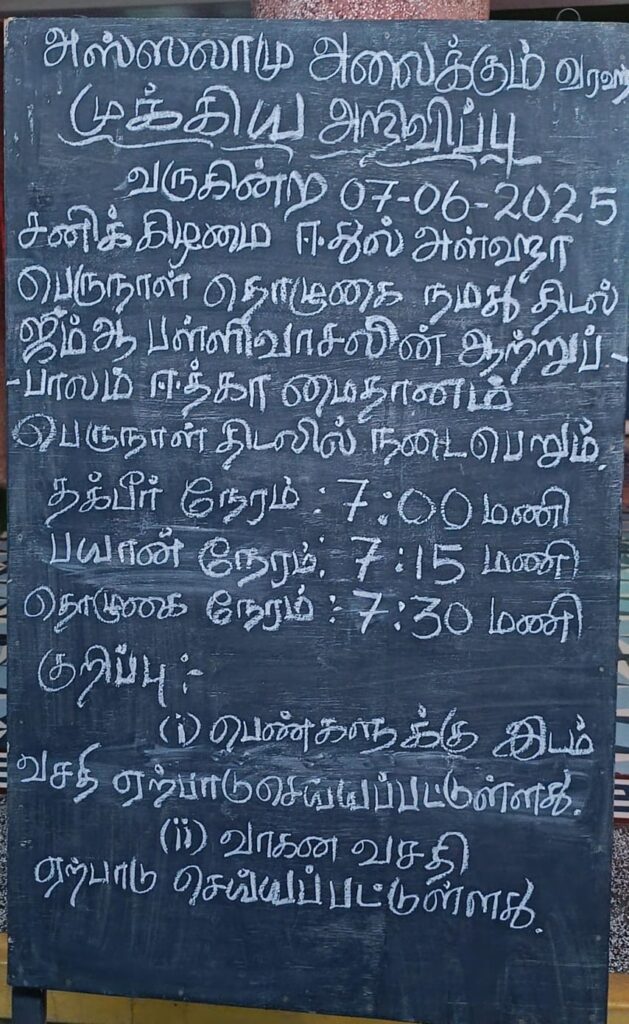 அஸ்ஸலாமு அலைக்கும் வரஹ்
முக்கிய அறிவிப்பு
வருகின்ற 07-06-2025
சனிக்கிழமை ஈதுல் அள்ஹா
பெருநாள் தொழுகை நமது திடல்
ஜீம்ஆ பள்ளிவாசலின் ஆற்றுப்-
-பாலம் ஈத்கா மைதானம்
பெருநாள் திடலில் நடைபெறும்.
தக்பீர் நேரம் : 7:00 மணி
பயான் நேரம்: 7:15 மணி
தொழுகை நேரம் : 7:30 மணி
குறிப்பு :-
(i) பெண்களுக்கு இடம்
வசதி ஏற்பாடுசெய்யப்பட்டுள்ளது.
(ii) வாகன வசதி
ஏற்பாடு செய்யப்பட்டுள்ளது.